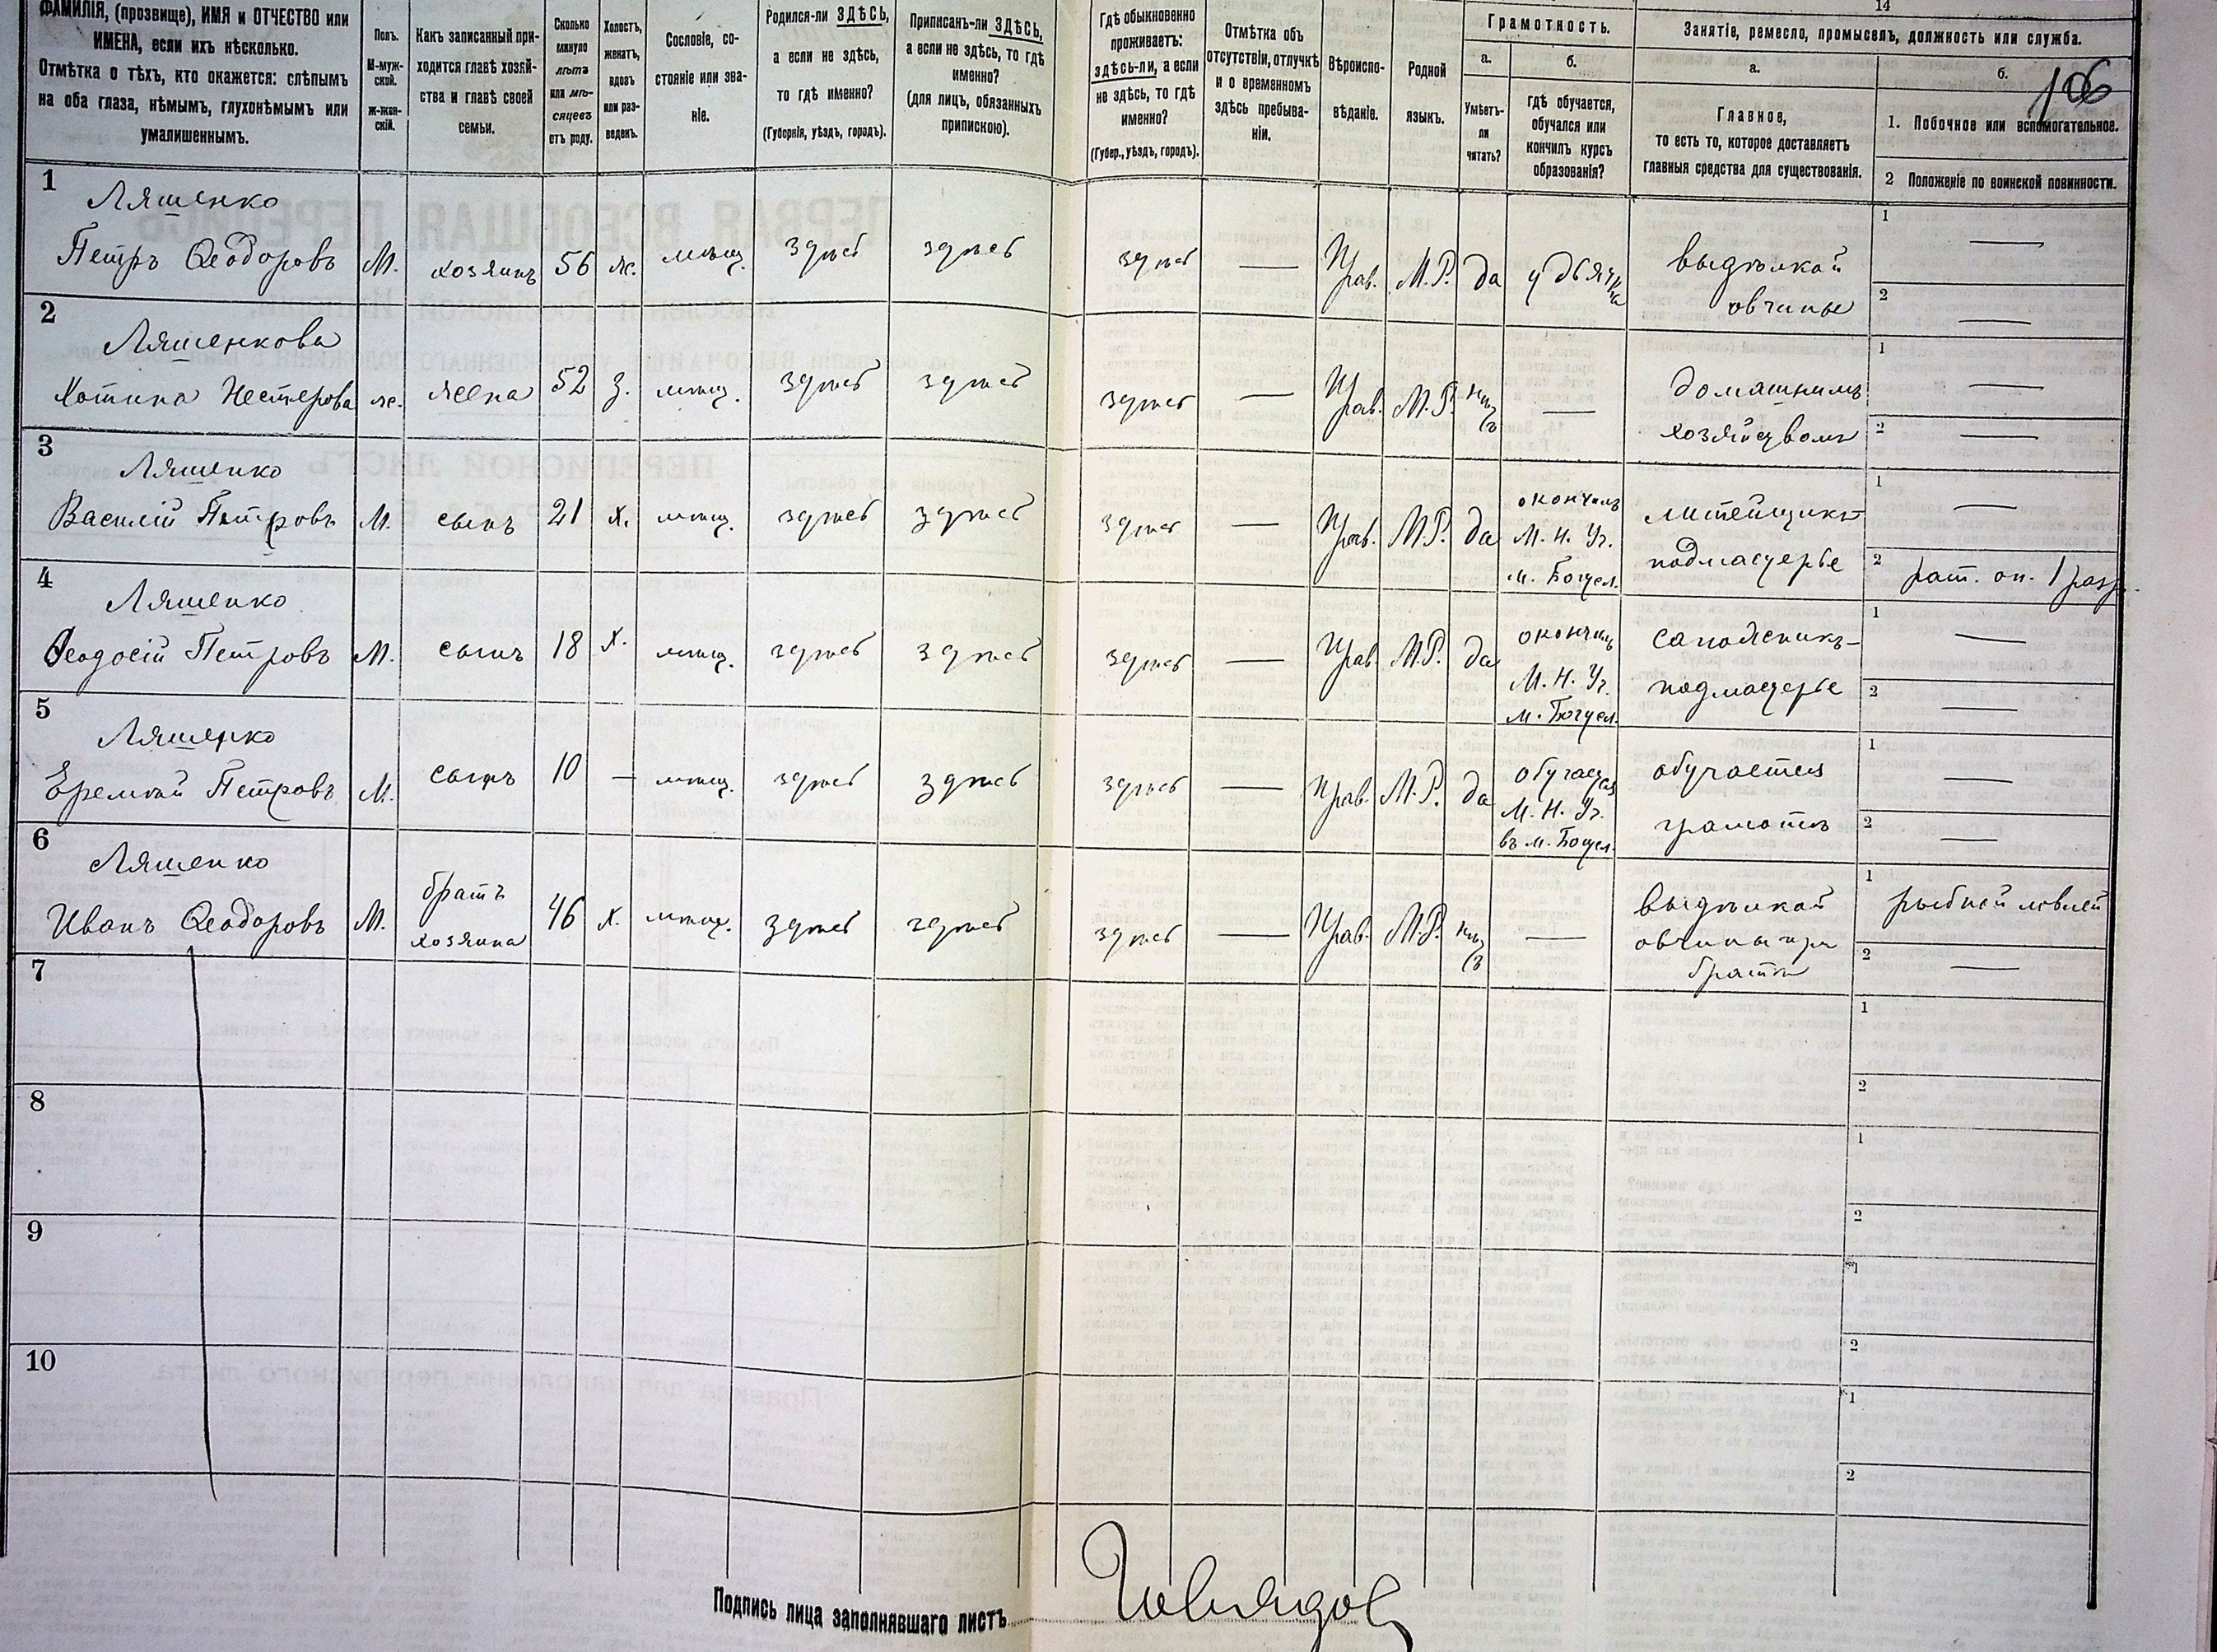 14
ФАМИЛІЯ, (прозвище), ИМЯ и ОТЧЕСТВО или
ИМЕНА, если ихъ нѣсколько.
Отмѣтка о тѣхъ, кто окажется: слѣпымъ
на оба глаза, нѣмымъ, глухонѣмымъ или
умалишеннымъ.
Полъ.
М-муж-
ской.
ж-жен-
скій.
Какъ записанный при-
ходится главѣ хозяй-
ства и главѣ своей
семьи.
Сколько
минуло
лѣтъ
или мѣ-
сяцевъ
отъ роду.
Холостъ,
женатъ,
вдовъ
или раз-
веденъ.
Сословіе, со-
стояніе или зва-
ніе.
Родился-ли ЗДѢСЬ,
а если не здѣсь,
то гдѣ именно?
(Губернія, уѣздъ, городъ).
Приписанъ-ли ЗДѢСЬ,
а если не здѣсь, то гдѣ
именно?
(для лицъ, обязанныхъ
припискою).
Гдѣ обыкновенно
проживаетъ:
здѣсь-ли, а если
не здѣсь, то гдѣ
именно?
(Губер., уѣздъ, городъ).
Отмѣтка объ
отсутствіи, отлучкѣ
и о временномъ
здѣсь пребыва-
ніи.
Вѣроиспо-
вѣданіе.
Родной
языкъ.
Грамотность.
а.
Умѣетъ-
ли
читать?
б.
гдѣ обучается,
обучался или
кончилъ курсъ
образованія?
Занятіе, ремесло, промыселъ, должность или служба.
а.
Главное,
то есть то, которое доставляетъ
главныя средства для существованія.
б.
106
1. Побочное или вспомогательное.
2 Положеніе по воинской повинности.
1
Ляшенко
Петръ Ѳеодоровъ М. хозяинъ 56 ж. мѣщ. здѣсь здѣсь здѣсь — Прав. М.Р. да у дьячка
выдѣлкой
овчины
1 —
2 —
2
Ляшенкова
Хотина Нестерова ж. жена 52 з. мѣщ. здѣсь здѣсь здѣсь — Прав. М.Р. нѣтъ —
домашнимъ
хозяйствомъ
1 —
2 —
3
Ляшенко
Василій Петровъ М. сынъ 21 х. мѣщ. здѣсь здѣсь здѣсь — Прав. М.Р. да
окончилъ
М. Н. Уч.
м. Богусл.
литейщикъ
подмастерье
1 —
2 рат. оп. 1 разр.
4
Ляшенко
Ѳеодосій Петровъ М. сынъ 18 х. мѣщ. здѣсь здѣсь здѣсь — Прав. М.Р. да
окончилъ
М. Н. Уч.
м. Богусл.
сапожникъ-
подмастерье
1 —
2 —
5
Ляшенко
Еремѣй Петровъ М. сынъ 10 — мѣщ. здѣсь здѣсь здѣсь — Прав. М.Р. да
обучается
М. Н. Уч.
въ м. Богусл.
обучается
грамотѣ
1 —
2 —
6
Ляшенко
Иванъ Ѳеодоровъ М. братъ
хозяина 46 х. мѣщ. здѣсь здѣсь здѣсь — Прав. М.Р. нѣтъ —
выдѣлкой
овчины при
братѣ
1 рыбной ловлей
2 —
7
1
2
8
1
2
9
1
2
10
1
2
Подпись лица заполнявшаго листъ